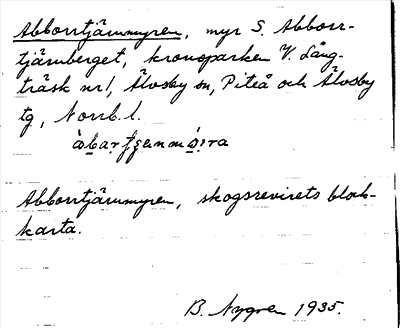 Abborrtjärnmyren, myr S. Abborr-
tjärnberget, kronoparken V. Lång-
träsk nr 1, Älvsby sn, Piteå och Älvsby
tg, Norrb. l.
Abborrtjärnmyren, skogsrevirets block-
karta.
B. Nygren 1935.